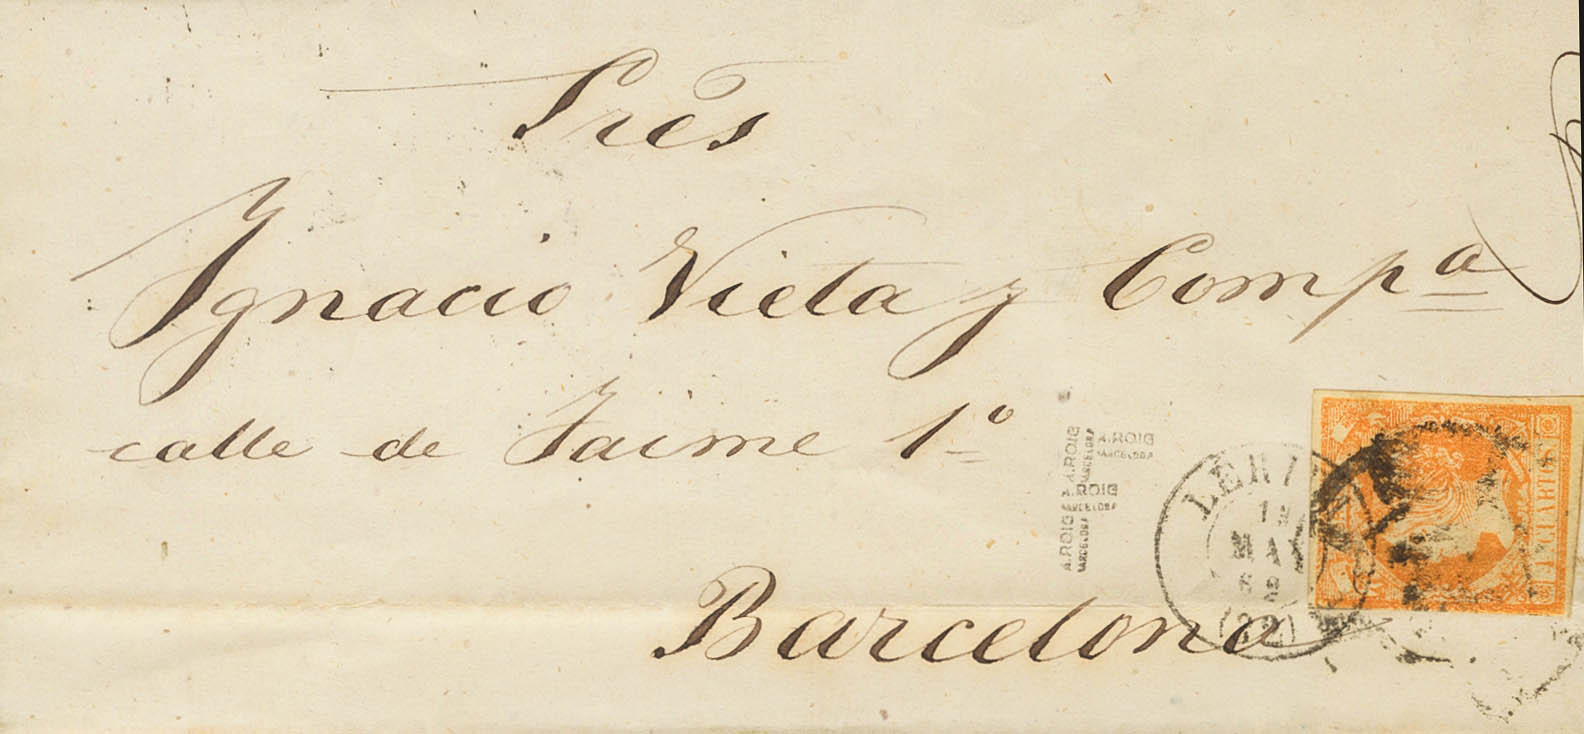 Sres
Ygnacio Vieta y Compª
calle de Jaime 1º
A.ROIG
BARCELONA
A.ROIG
BARCELONA
A.ROIG
BARCELONA
A.ROIG
BARCELONA
Barcelona
4 CUARTOS